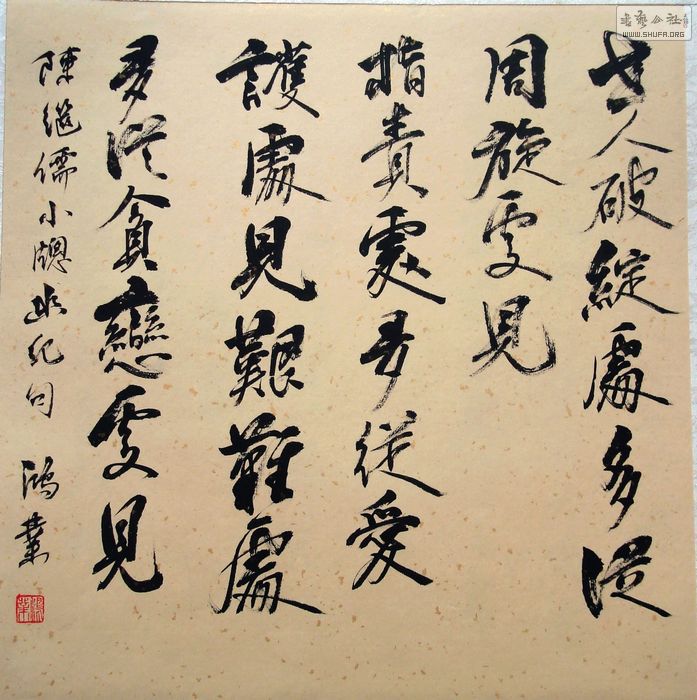 世人破綻處多從
周旋處見
指責處多從愛
護處見艱難處
多從貪戀處見
陳繼儒小牕幽記句 鴻業
書藝公社
WWW.SHUFA.ORG